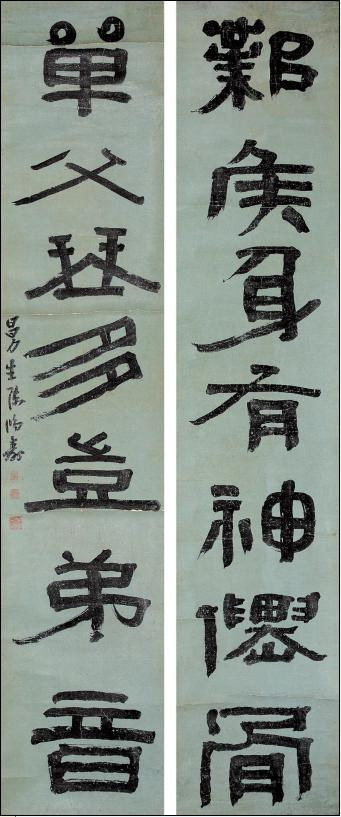 鄴侯身有神僊骨
單父琴多豈弟音
曼生陳鴻壽